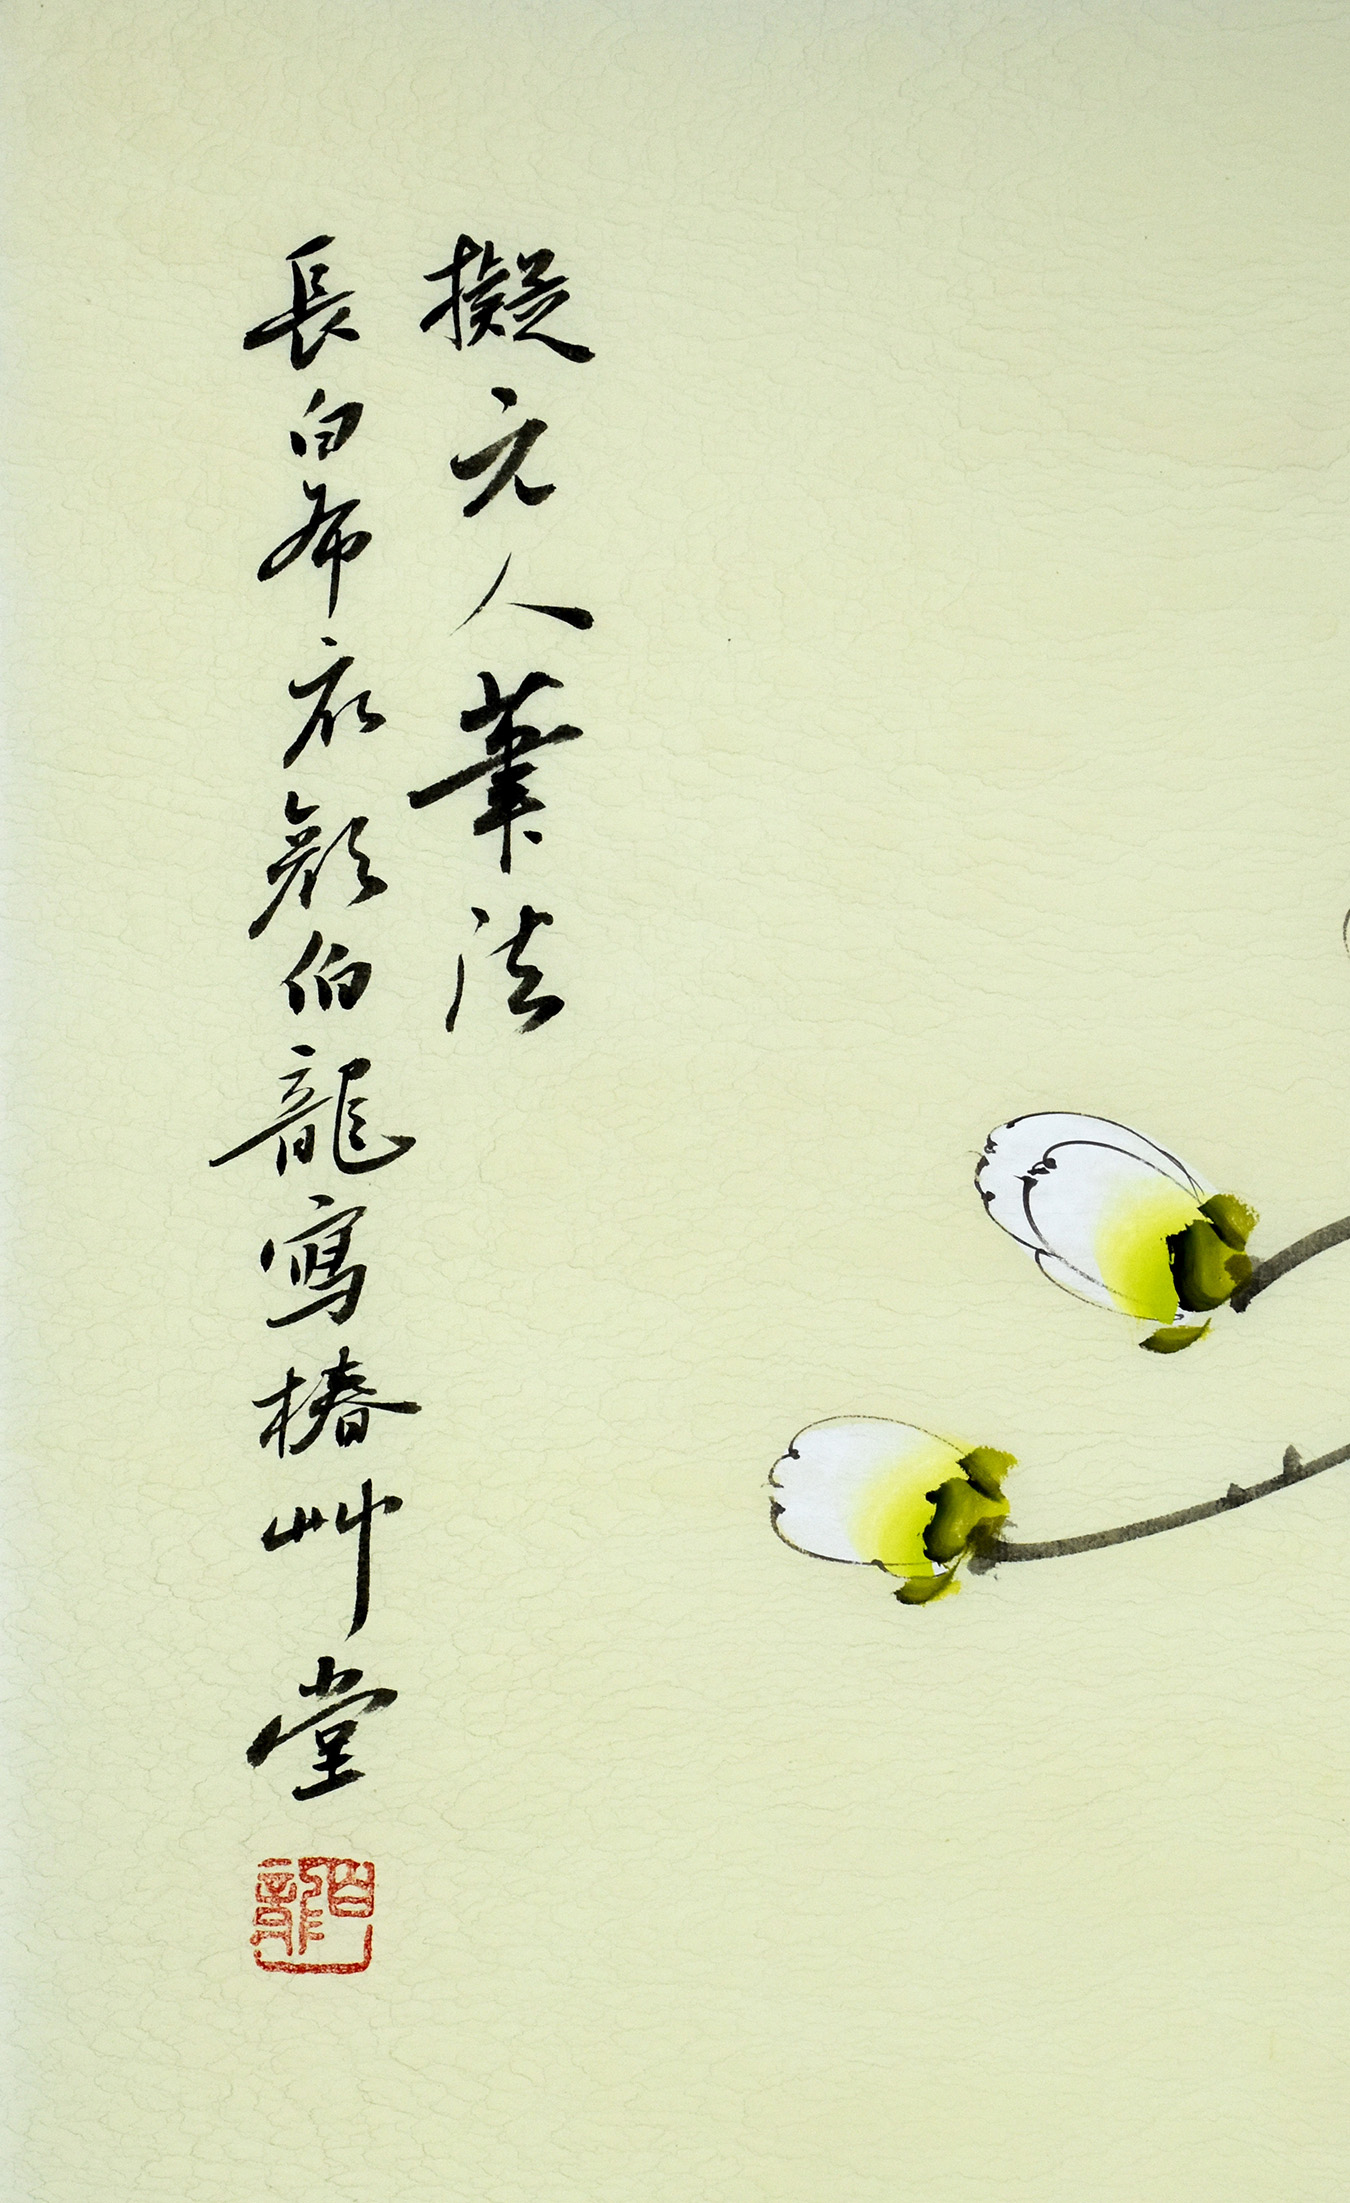 擬元人筆法
長白布衣顏伯龍寫椿艸堂
伯龍